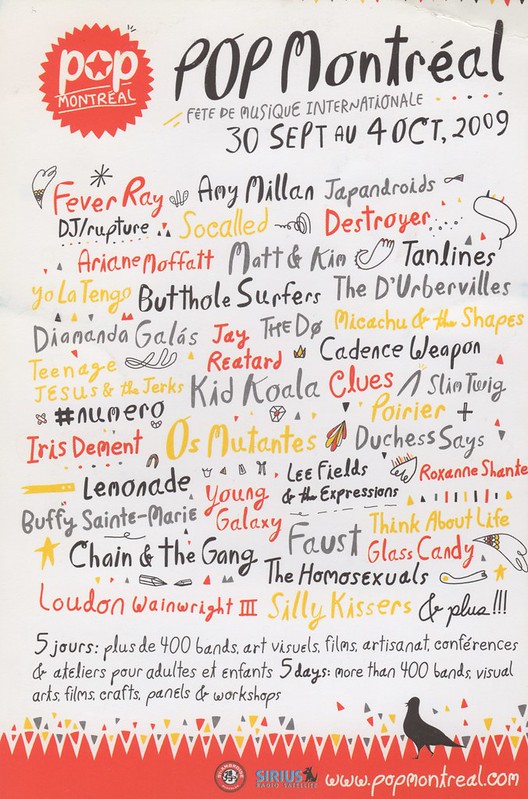 pop
MONTRÉAL
POP Montréal
FÊTE DE MUSIQUE INTERNATIONALE
30 SEPT AU 4 OCT, 2009
Fever Ray Amy Millan Japandroids
DJ/rupture Socalled Destroyer
Ariane Moffatt Matt & Kim Tanlines
Yo La Tengo Butthole Surfers The D'Urbervilles
Diamanda Galás Jay Reatard THE DØ Micachu & the Shapes
Teenage Jesus & the Jerks Cadence Weapon
Kid Koala Clues Slim Twig
#numero Poirier +
Iris Dement Os Mutantes Duchess Says
Lemonade Young Galaxy Lee Fields & the Expressions Roxanne Shante
Buffy Sainte-Marie Faust Think About Life
Chain & the Gang Glass Candy
The Homosexuals
Loudon Wainwright III Silly Kissers & plus!!!
5 jours: plus de 400 bands, art visuels, films, artisanat, conférences
& ateliers pour adultes et enfants 5 days: more than 400 bands, visual
arts, films, crafts, panels & workshops
SIRIUS
RADIO SATELLITE
www.popmontreal.com